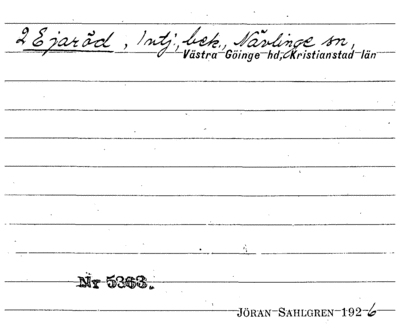 2 Ejaröd, Intj., bek., Nävlinge sn,
Västra Göinge hd, Kristianstad län
Nr 5363.
JÖRAN SAHLGREN 1926